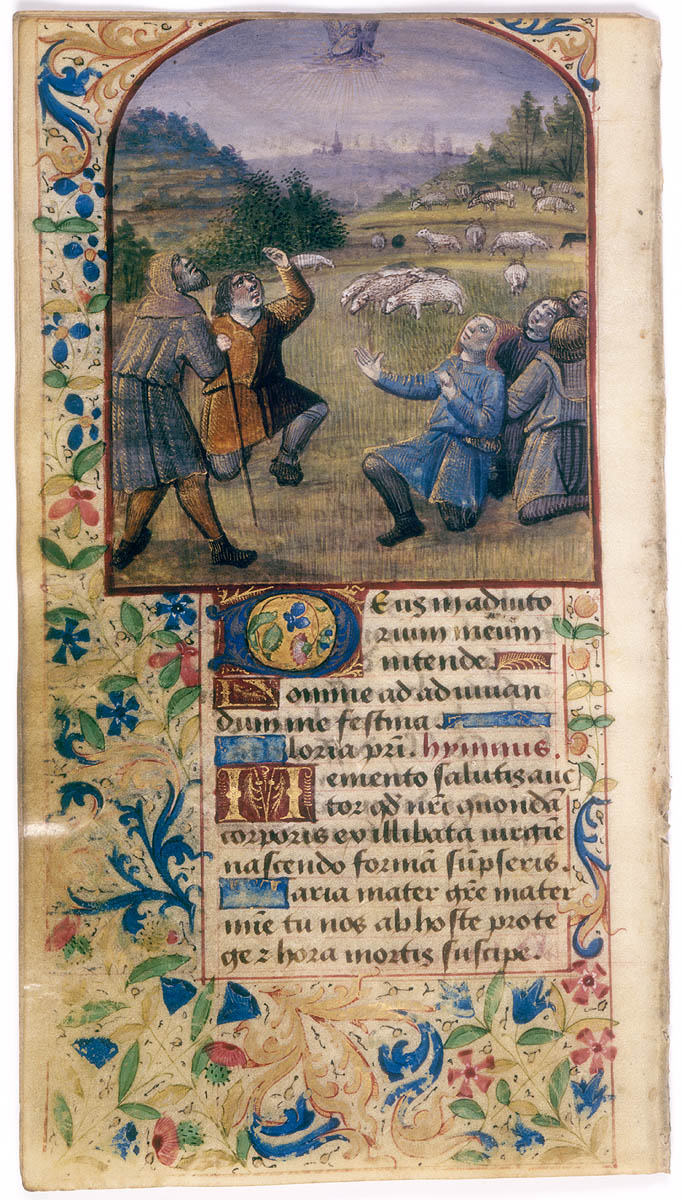 Deus in adiuto
rium meum
intende.
Domine ad adiuuan
dum me festina.
Gloria pri. hymnus.
Memento salutis auc
tor qd nri quondā
corporis ex illibata uirgīe
nascendo formā sūpseris.
Maria mater grē mater
mīe tu nos ab hoste prote
ge ⁊ hora mortis suscipe.